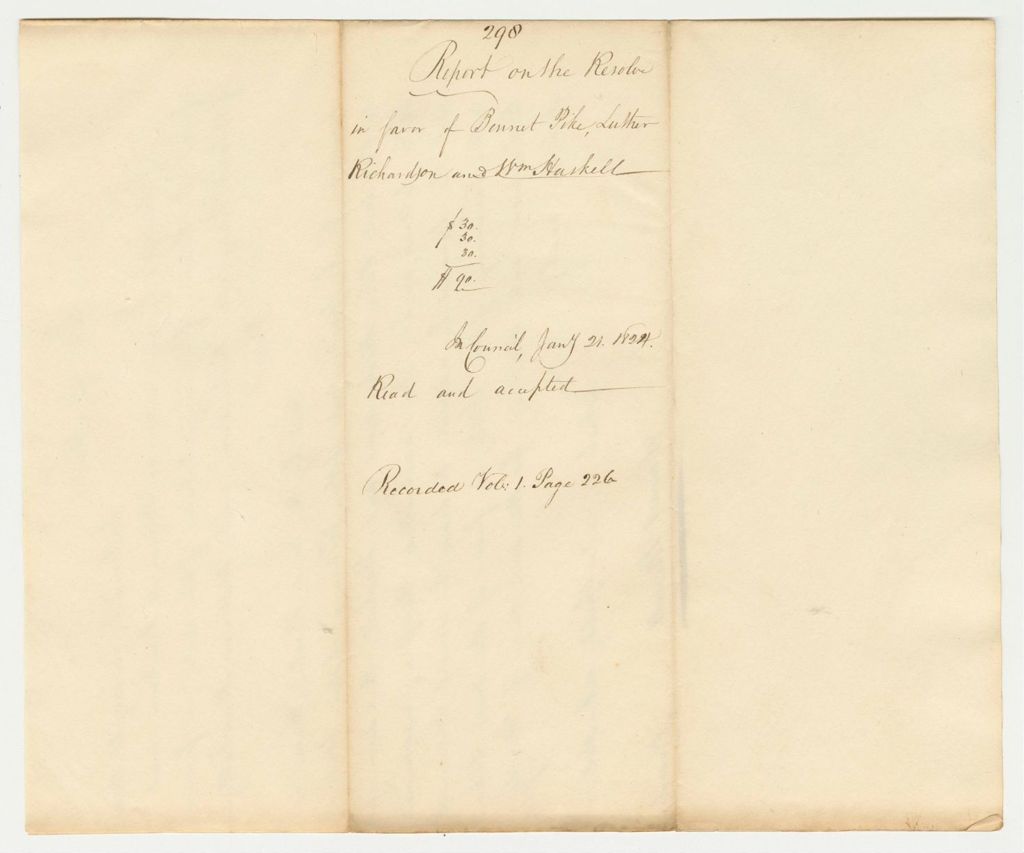 298
Report on the Resolve
in favor of Bennet Pike, Luther
Richardson and Wm Haskell
$ 30.
30.
30.
$ 90.
In Council, Jany 21. 1824.
Read and accepted
Recorded Vol: 1. Page 226